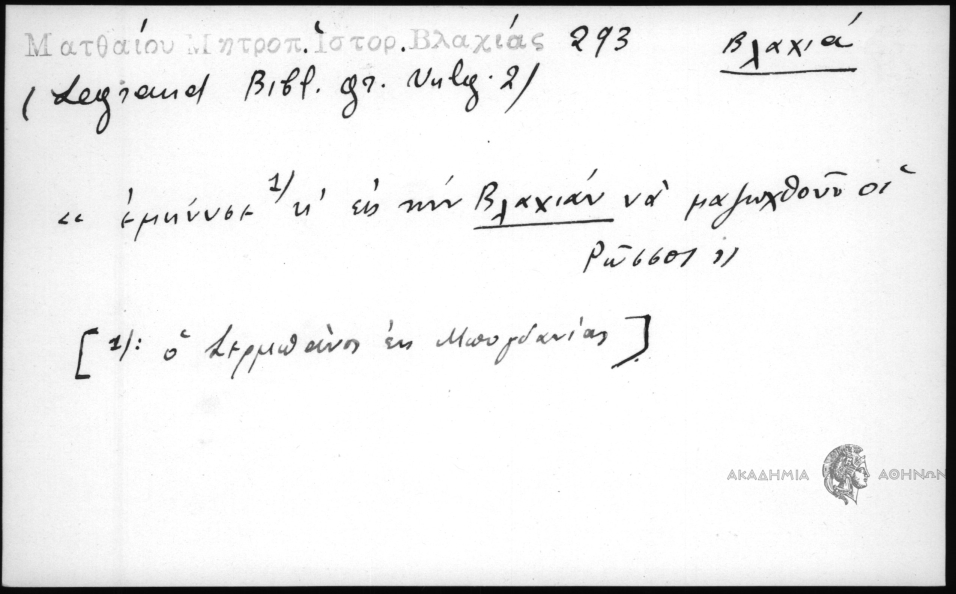 Ματθαίου Μητροπ. Ἱστορ. Βλαχίας 293 Βλαχιά
(Legrand Bibl. gr. Vulg. 2)
« ἐμήνυσε 1) κ' εἰς τὴν Βλαχιάν νὰ μαζωχθοῦν οἱ
Ρῶσσοι »
[1): ὁ Σερμπάνος ἐκ Μπογδανίας]
ΑΚΑΔΗΜΙΑ ΑΘΗΝΩΝ